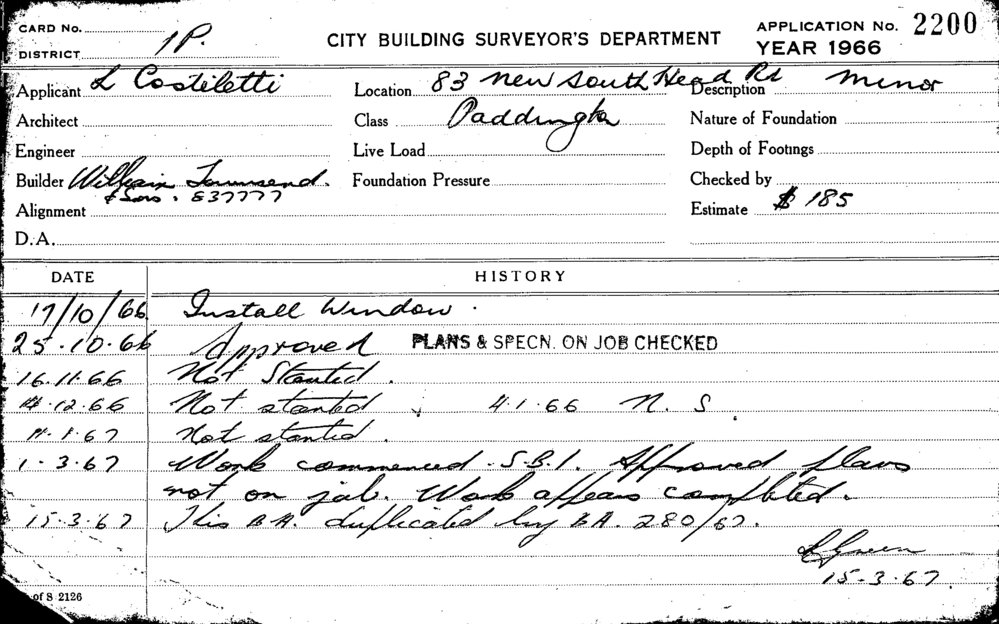 CARD No.
DISTRICT 1P.
CITY BUILDING SURVEYOR'S DEPARTMENT
APPLICATION No. 2200
YEAR 1966
Applicant L Costeletti
Location 83 New South Head Rd
Description Minor
Architect
Class Paddington
Nature of Foundation
Engineer
Live Load
Depth of Footings
Builder William Townsend.
& Sons. 637777
Foundation Pressure
Checked by
Alignment
Estimate $ 185
D.A.
DATE HISTORY
17/10/66 Install Window.
25.10.66 Approved PLANS & SPECN. ON JOB CHECKED
16.11.66 Not Started.
.12.66 Not started , 4.1.66 N. S.
.1.67 Not started.
1.3.67 Work commenced. S.B.1. Approved plans
not on job. Work appears completed.
15.3.67 This B.A. duplicated by B.A. 280/67.
Green
15-3-67.
of S 2126